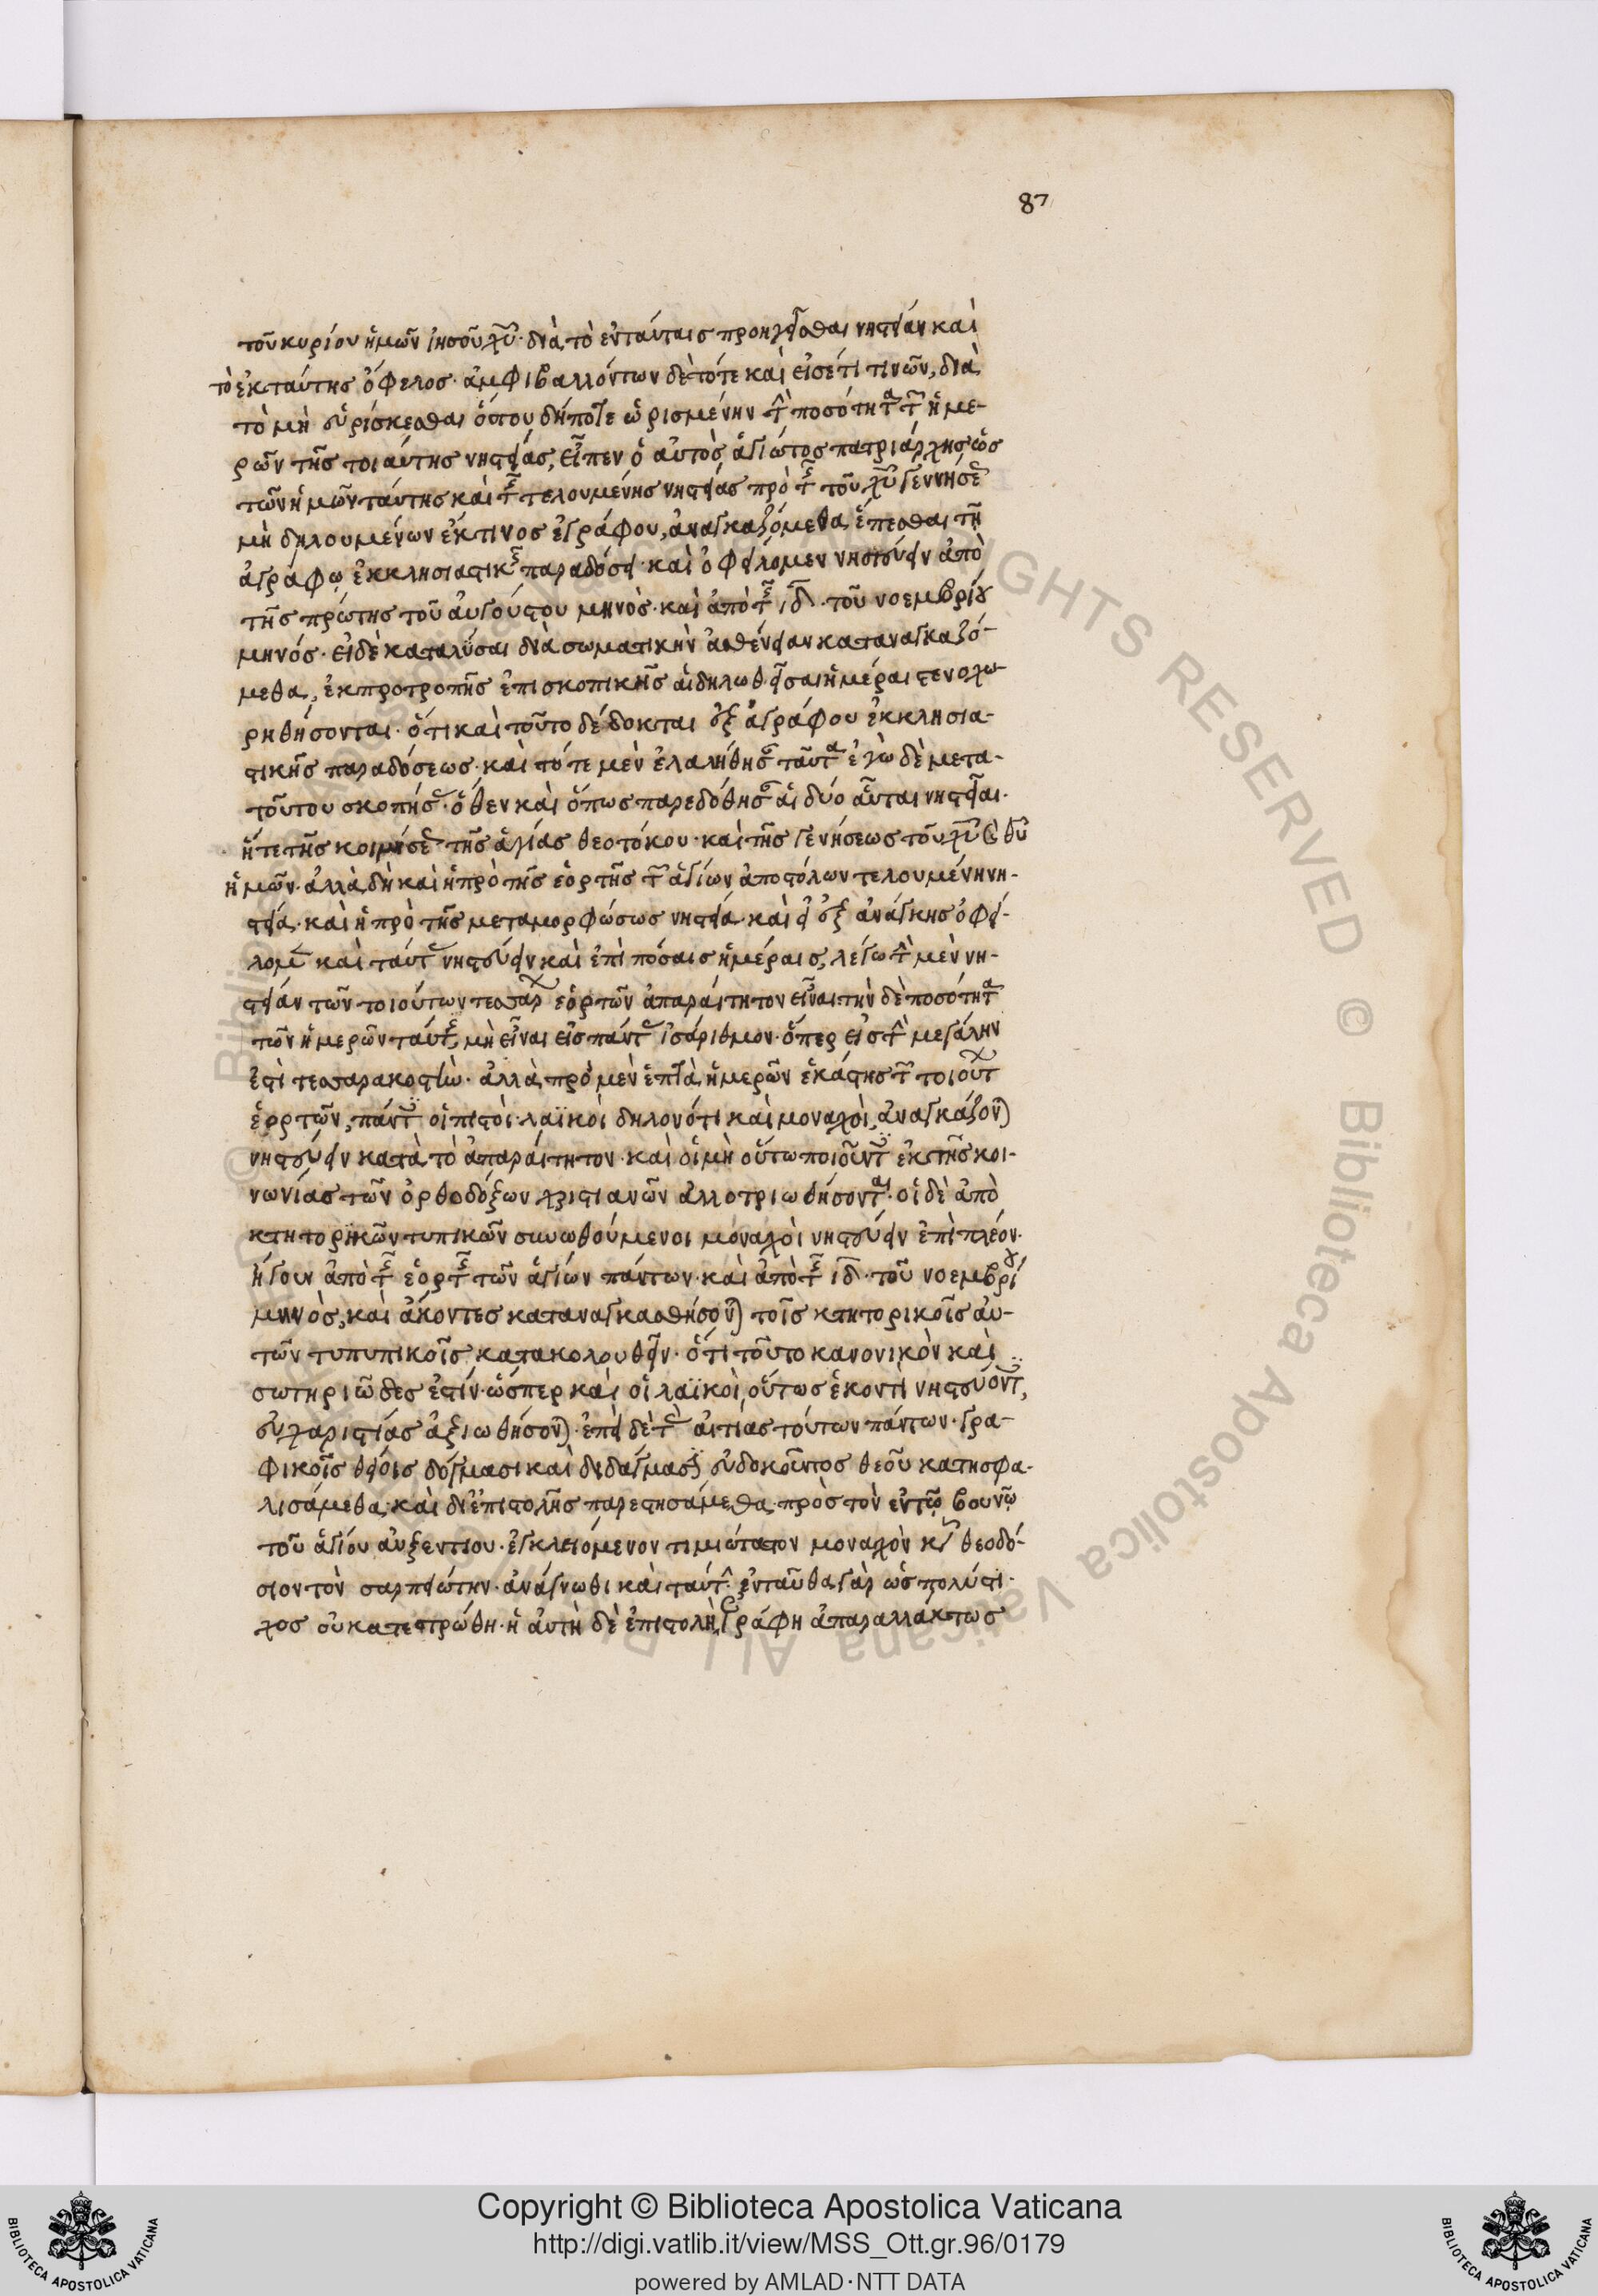 87
τοῦ κυρίου ἡμῶν ἰησοῦ χυ̅· διὰ τὸ ἐν ταύταις προηγεῖσθαι νηστείαν καὶ
τὸ ἐκ ταύτης ὄφελος· ἀμφιβαλλόντων δὲ τότε καὶ εἰσέτι τινῶν, διὰ
τὸ μὴ εὑρίσκεσθαι ὅπου δήποτε ὡρισμένην τὴν ποσότητα τῶν ἡμε-
ρῶν τῆς τοιαύτης νηστείας, εἶπεν ὁ αὐτὸς ἁγιώτος πατριάρχης, ὡς
τῶν ἡμῶν ταύτης καὶ τῆς τελουμένης νηστείας πρὸ τῆς τοῦ χυ̅ γεννήσε
μὴ δηλουμένων ἐκ τινος ἐγράφου, ἀναγκαζόμεθα ἕπεσθαι τῇ
ἀγράφῳ ἐκκλησιαστικῆς παραδόσει· καὶ ὀφείλομεν νηστεύειν ἀπὸ
τῆς πρώτης τοῦ αὐγούστου μηνός· καὶ ἀπὸ τῆς ιδ̅· τοῦ νοεμβρίου
μηνός· εἰ δὲ καταλῦσαι διὰ σωματικὴν ἀσθένειαν καταναγκαζό-
μεθα, ἐκ προτροπῆς ἐπισκοπικῆς αἱ δηλωθεῖσαι ἡμέραι στενοχω-
ρηθήσονται· ὅτι καὶ τοῦτο δέδοκται ἐξ ἀγράφου ἐκκλησια-
στικῆς παραδόσεως· καὶ τότε μὲν ἐλαλήθησ ταῦτα ἐγὼ δὲ μετα-
τοῦτου σκοπήσ· ὅθεν καὶ ὅπως παρεδόθησ αἱ δύο αὗται νηστεῖαι·
ἥ τε τῆς κοιμήσε τῆς ἁγίας θεοτόκου· καὶ τῆς γενήσεως τοῦ χυ̅ καὶ θυ̅
ἡμῶν· ἀλλὰ δὴ καὶ ἡ πρὸ τῆς ἑορτῆς τῶν ἁγίων ἀποστόλων τελουμένη νη-
στεία· καὶ ἡ πρὸ τῆς μεταμορφώσεως νηστεία· καὶ εἰ ἐξ ἀνάγκης ὀφεί-
λομ καὶ ταύτ νηστεύειν καὶ ἐπὶ πόσαις ἡμέραις, λέγω τὴν μὲν νη-
στείαν τῶν τοιούτων τεσσάρ ἑορτῶν ἀπαραίτητον εἶναι· τὴν δὲ ποσότητα
τῶν ἡμερῶν ταύτης, μὴ εἶναι εἰς πάντ ἰσάριθμον· ὅπερ εἰς τὴν μεγάλην
ἐστὶ τεσσαρακοστὴν· ἀλλὰ πρὸ μὲν ἑπτὰ ἡμερῶν ἑκάστης τῶν τοιούτ
ἑορτῶν, πάντ οἱ πιστοὶ· λαϊκοὶ δηλονότι καὶ μοναχοὶ, ἀναγκάζον
νηστεύειν κατὰ τὸ ἀπαραίτητον· καὶ οἱ μὴ οὕτω ποιοῦντ ἐκ τῆς κοι-
νωνίας τῶν ὀρθοδόξων χριστιανῶν ἀλλοτριωθήσονται· οἱ δὲ ἀπὸ
κτητορικῶν τυπικῶν συνωθούμενοι μοναχοὶ νηστεύειν ἐπὶ πλέον·
ἤγουν ἀπὸ τῆς ἑορτῆς τῶν ἁγίων πάντων· καὶ ἀπὸ τῆς ιδ̅· τοῦ νοεμβρίου
μηνὸς, καὶ ἄκοντες καταναγκασθήσον τοῖς κτητορικοῖς αὐ-
τῶν τυπυπικοῖς κατακολουθεῖν· ὅτι τοῦτο κανονικὸν καὶ
σωτηριῶδες ἐστίν· ὥσπερ καὶ οἱ λαϊκοὶ, οὕτως ἑκοντὶ νηστεύοντ,
εὐχαριστίας ἀξιωθήσον· ἐπεὶ δὲ τὰς αἰτίας τούτων πάντων· γρα-
φικοῖς θείοις δόγμασι καὶ διδάγμασι εὐδοκοῦντος θεοῦ κατησφα-
λισάμεθα, καὶ δι' ἐπιστολῆς παρεστησάμεθα πρὸς τὸν ἐν τῷ βουνῷ
τοῦ ἁγίου αὐξεντίου· ἐγκλειόμενον τιμιώτατον μοναχὸν κυ θεοδό-
σιον τὸν σαρπιώτην· ἀνάγνωθι καὶ ταύτην· ἐνταῦθα γὰρ ὡς πολύστι-
χος οὐ κατεστρώθη· ἡ αὐτὴ δὲ ἐπιστολὴ, ἐγράφη ἀπαραλλάκτως
Copyright © Biblioteca Apostolica Vaticana
http://digi.vatlib.it/view/MSS_Ott.gr.96/0179
powered by AMLAD·NTT DATA
BIBLIOTECA APOSTOLICA VATICANA
BIBLIOTECA APOSTOLICA VATICANA
© Biblioteca Apostolica Vaticana ALL RIGHTS RESERVED